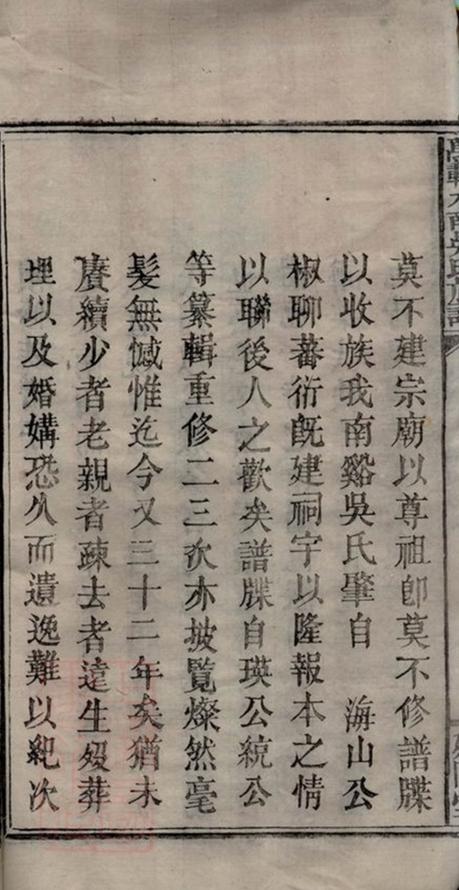 莫不建宗廟以尊祖卽莫不修譜牒
以收族我南谿吳氏肇自　海山公
椒聊蕃衍旣建祠宇以隆報本之情
以聯後人之歡矣譜牒自瑛公統公
等纂輯重修二三次亦披覽燦然毫
髮無憾惟迄今又三十二年矣猶未
賡續少者老親者疎去者遠生歿葬
埋以及婚媾恐久而遺逸難以紀次